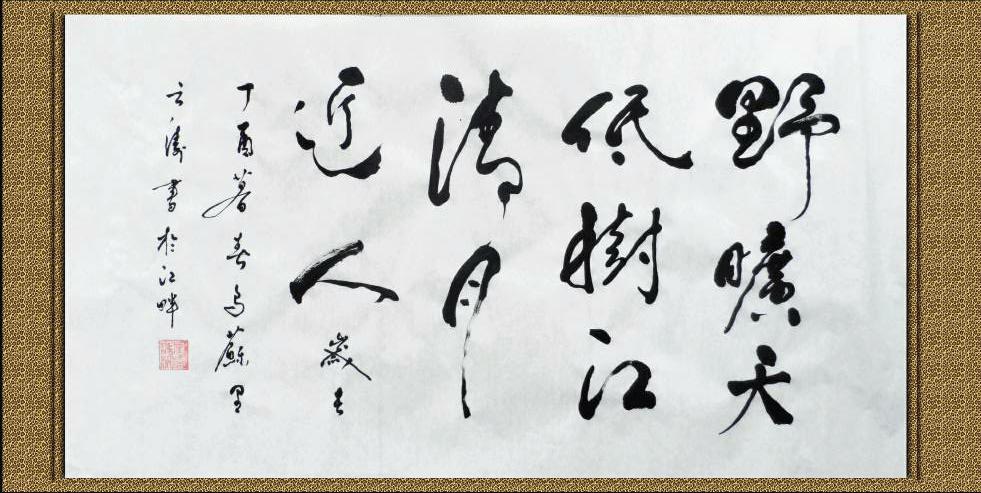 野曠天
低樹江
清月
近人 歲在
丁酉暮春烏蘇里
云濤書於江畔